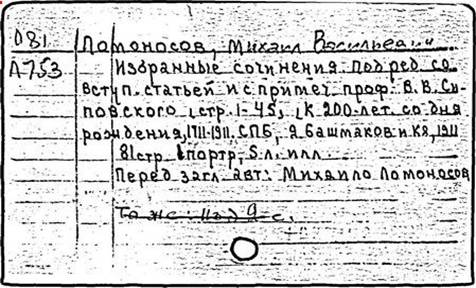 081 Ломоносов, Михаил Васильевич
Л753 Избранные сочинения под ред. со
вступ. статьей и с примеч. проф. В.В. Си-
повского, стр. 1-45, (К 200-лет. со дня
рождения, 1711-1911. СПБ, Я. Башмаков и Кя, 1911
81 стр. 1 портр, 5 л. илл.
Перед загл. авт: Михайло Ломоносов
То же.